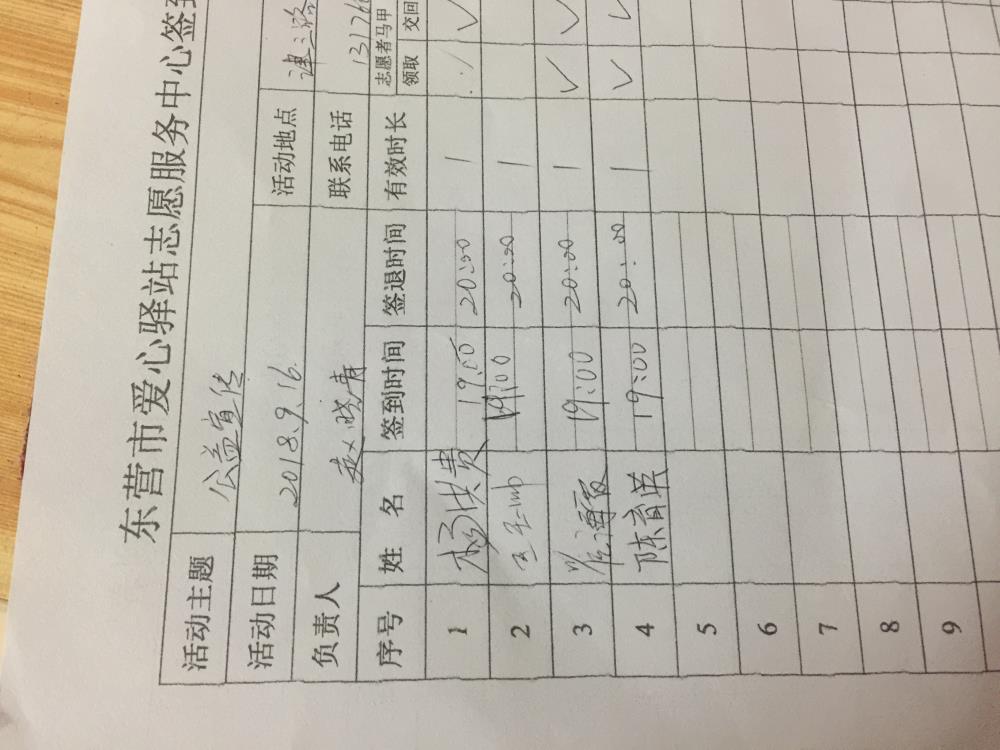 东营市爱心驿站志愿服务中心签到
活动主题 公益宣传
活动日期 2018.9.16 活动地点
负责人 赵晓青 联系电话 131266
序号 姓名 签到时间 签退时间 有效时长 志愿者马甲 领取 交回
1 杨洪贵 19:00 20:00 1 ✓ ✓
2 19:00 20:00 1
3 19:00 20:00 1 ✓ ✓
4 陈育英 19:00 20:00 1 ✓ ✓
5
6
7
8
9